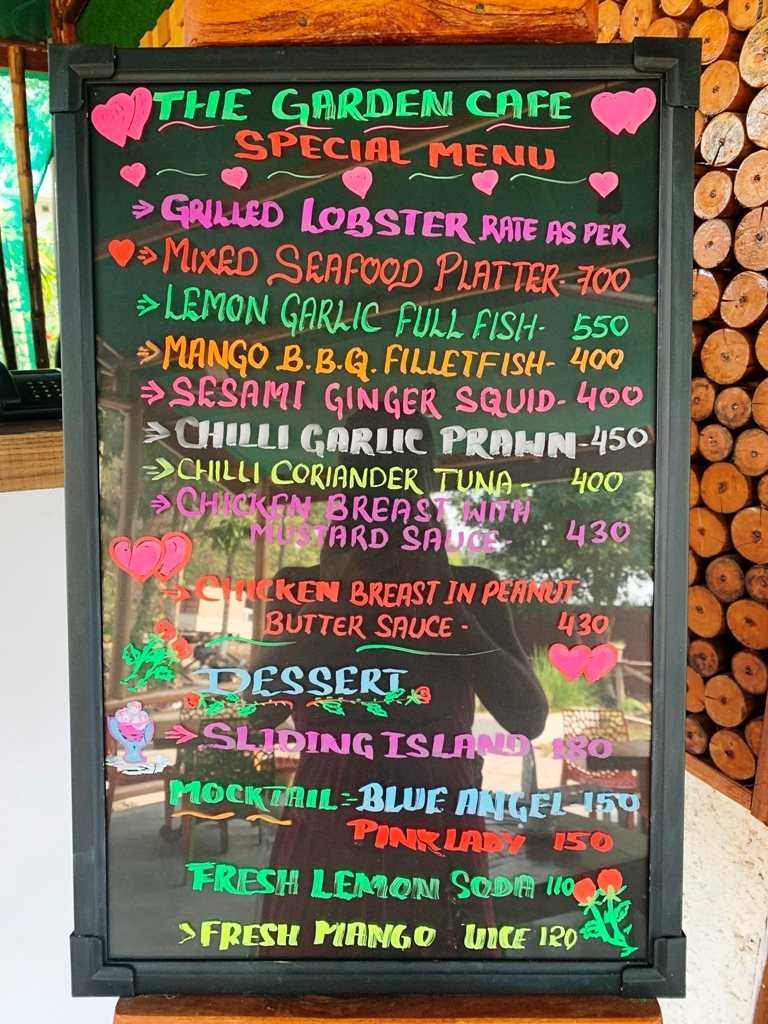 THE GARDEN CAFE
SPECIAL MENU
GRILLED LOBSTER RATE AS PER
MIXED SEAFOOD PLATTER- 700
LEMON GARLIC FULL FISH- 550
MANGO B.B.Q. FILLETFISH- 400
SESAMI GINGER SQUID- 400
CHILLI GARLIC PRAWN-450
CHILLI CORIANDER TUNA - 400
CHICKEN BREAST WITH
MUSTARD SAUCE- 430
CHICKEN BREAST IN PEANUT
BUTTER SAUCE - 430
DESSERT
SLIDING ISLAND- 180
MOCKTAIL:-BLUE ANGEL-150
PINK LADY 150
FRESH LEMON SODA 110
FRESH MANGO UICE 120